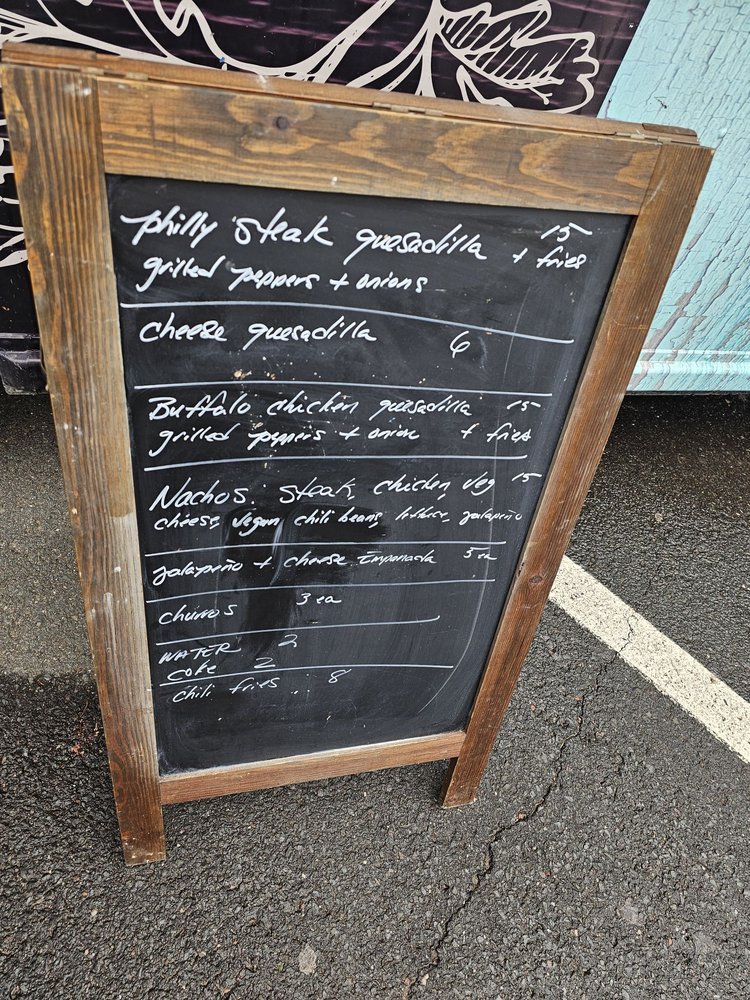 philly steak quesadilla 15
grilled peppers + onions + fries
cheese quesadilla 6
Buffalo chicken quesadilla 15
grilled peppers + onion + fries
Nachos: steak, chicken, veg 15
cheese, vegan chili beans, lettuce, jalapeño
jalapeño + cheese Empanada 3 ea
churros 3 ea
WATER 2
Coke 2
chili fries 8